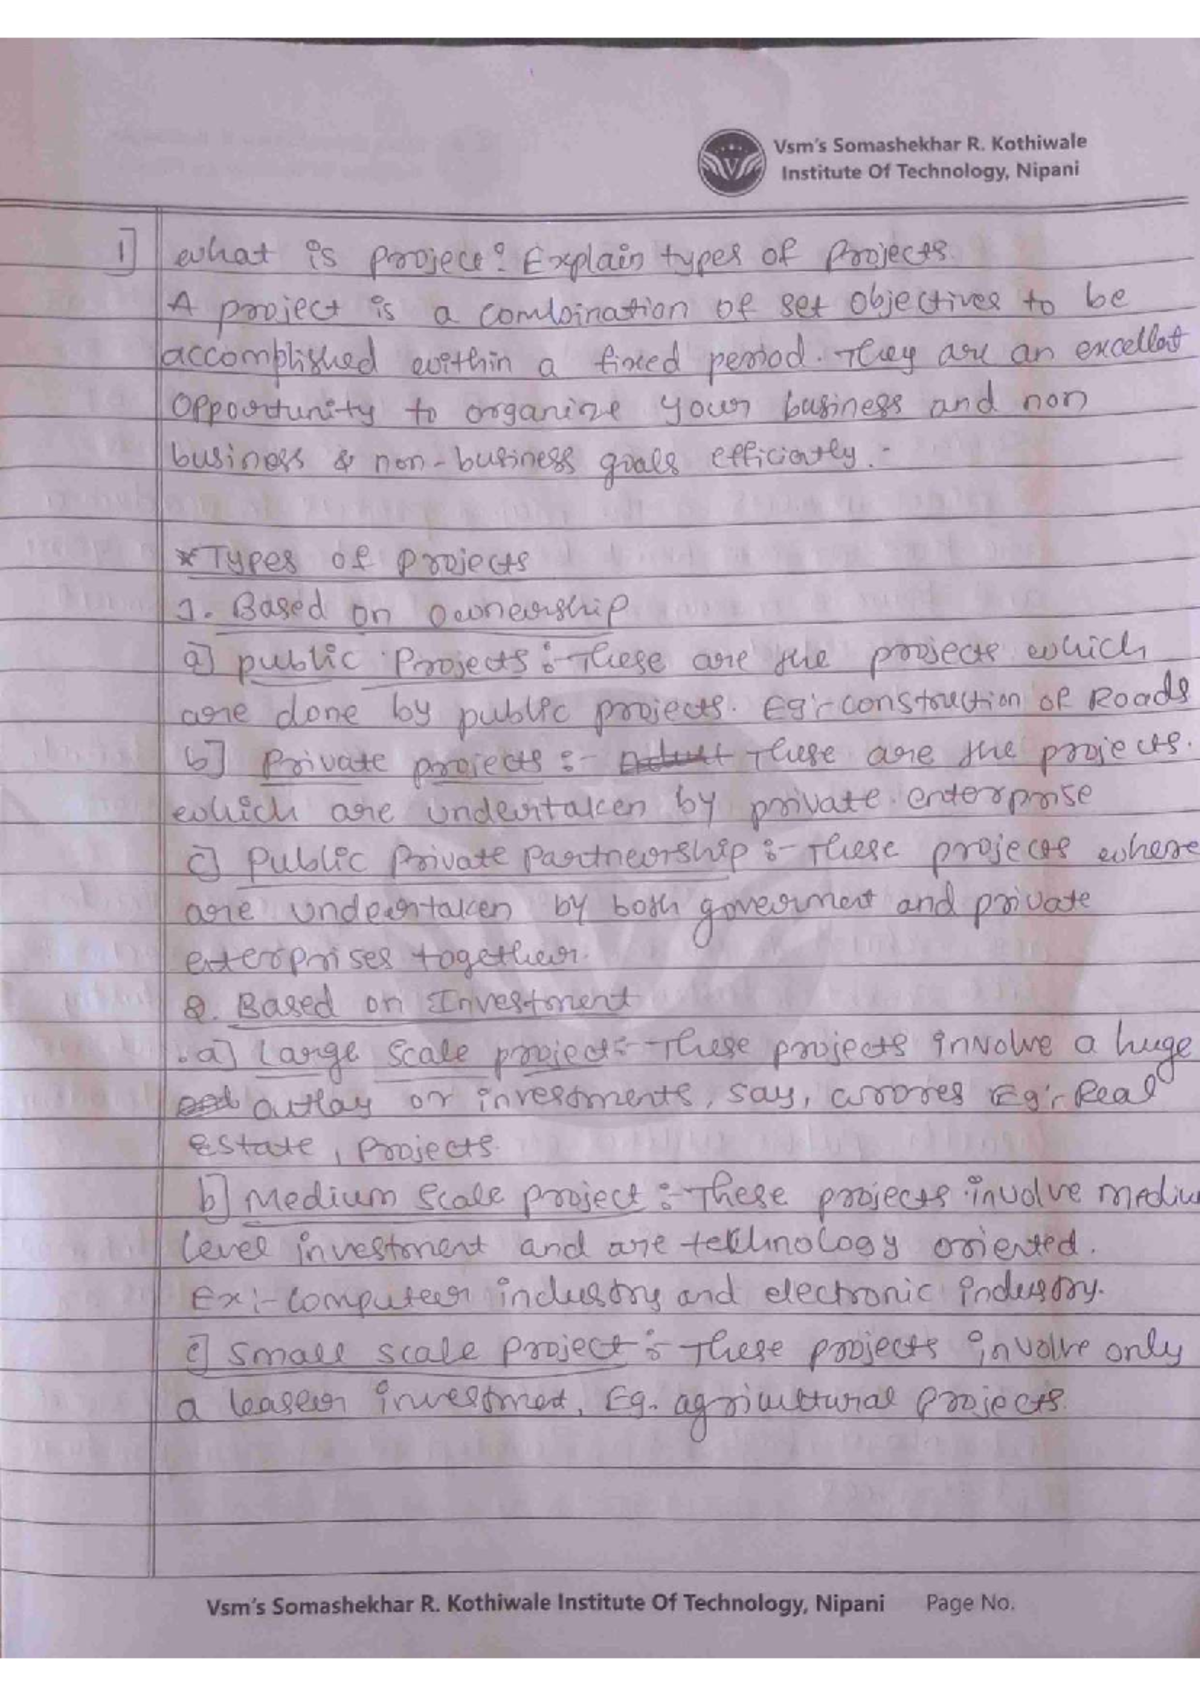 Vsm's Somashekhar R. Kothiwale
Institute Of Technology, Nipani
1] what is project? Explain types of Projects.
A project is a combination of set objectives to be
accomplished within a fixed period. They are an excellent
opportunity to organize your business and non
business & non-business goals efficiently.-
*Types of projects
1. Based on Ownership
a] public Projects :- These are the projects which
are done by public projects. Eg:- construction of Roads
b] Private projects :- These are the projects.
which are undertaken by private enterprise
c] Public Private Partnership :- These projects where
are undertaken by both goverment and private
enterprises together.
2. Based on Investment
a] Large scale project:- These projects involve a huge
outlay or investments, say, crores Eg:- Real
Estate, Projects.
b] Medium scale project :- These projects involve mediu
level investment and are technology oriented.
Ex:- computer industry and electronic industry.
c] small scale project :- These projects involve only
a leaser investment, Eg. agricultural projects.
Vsm's Somashekhar R. Kothiwale Institute Of Technology, Nipani Page No.